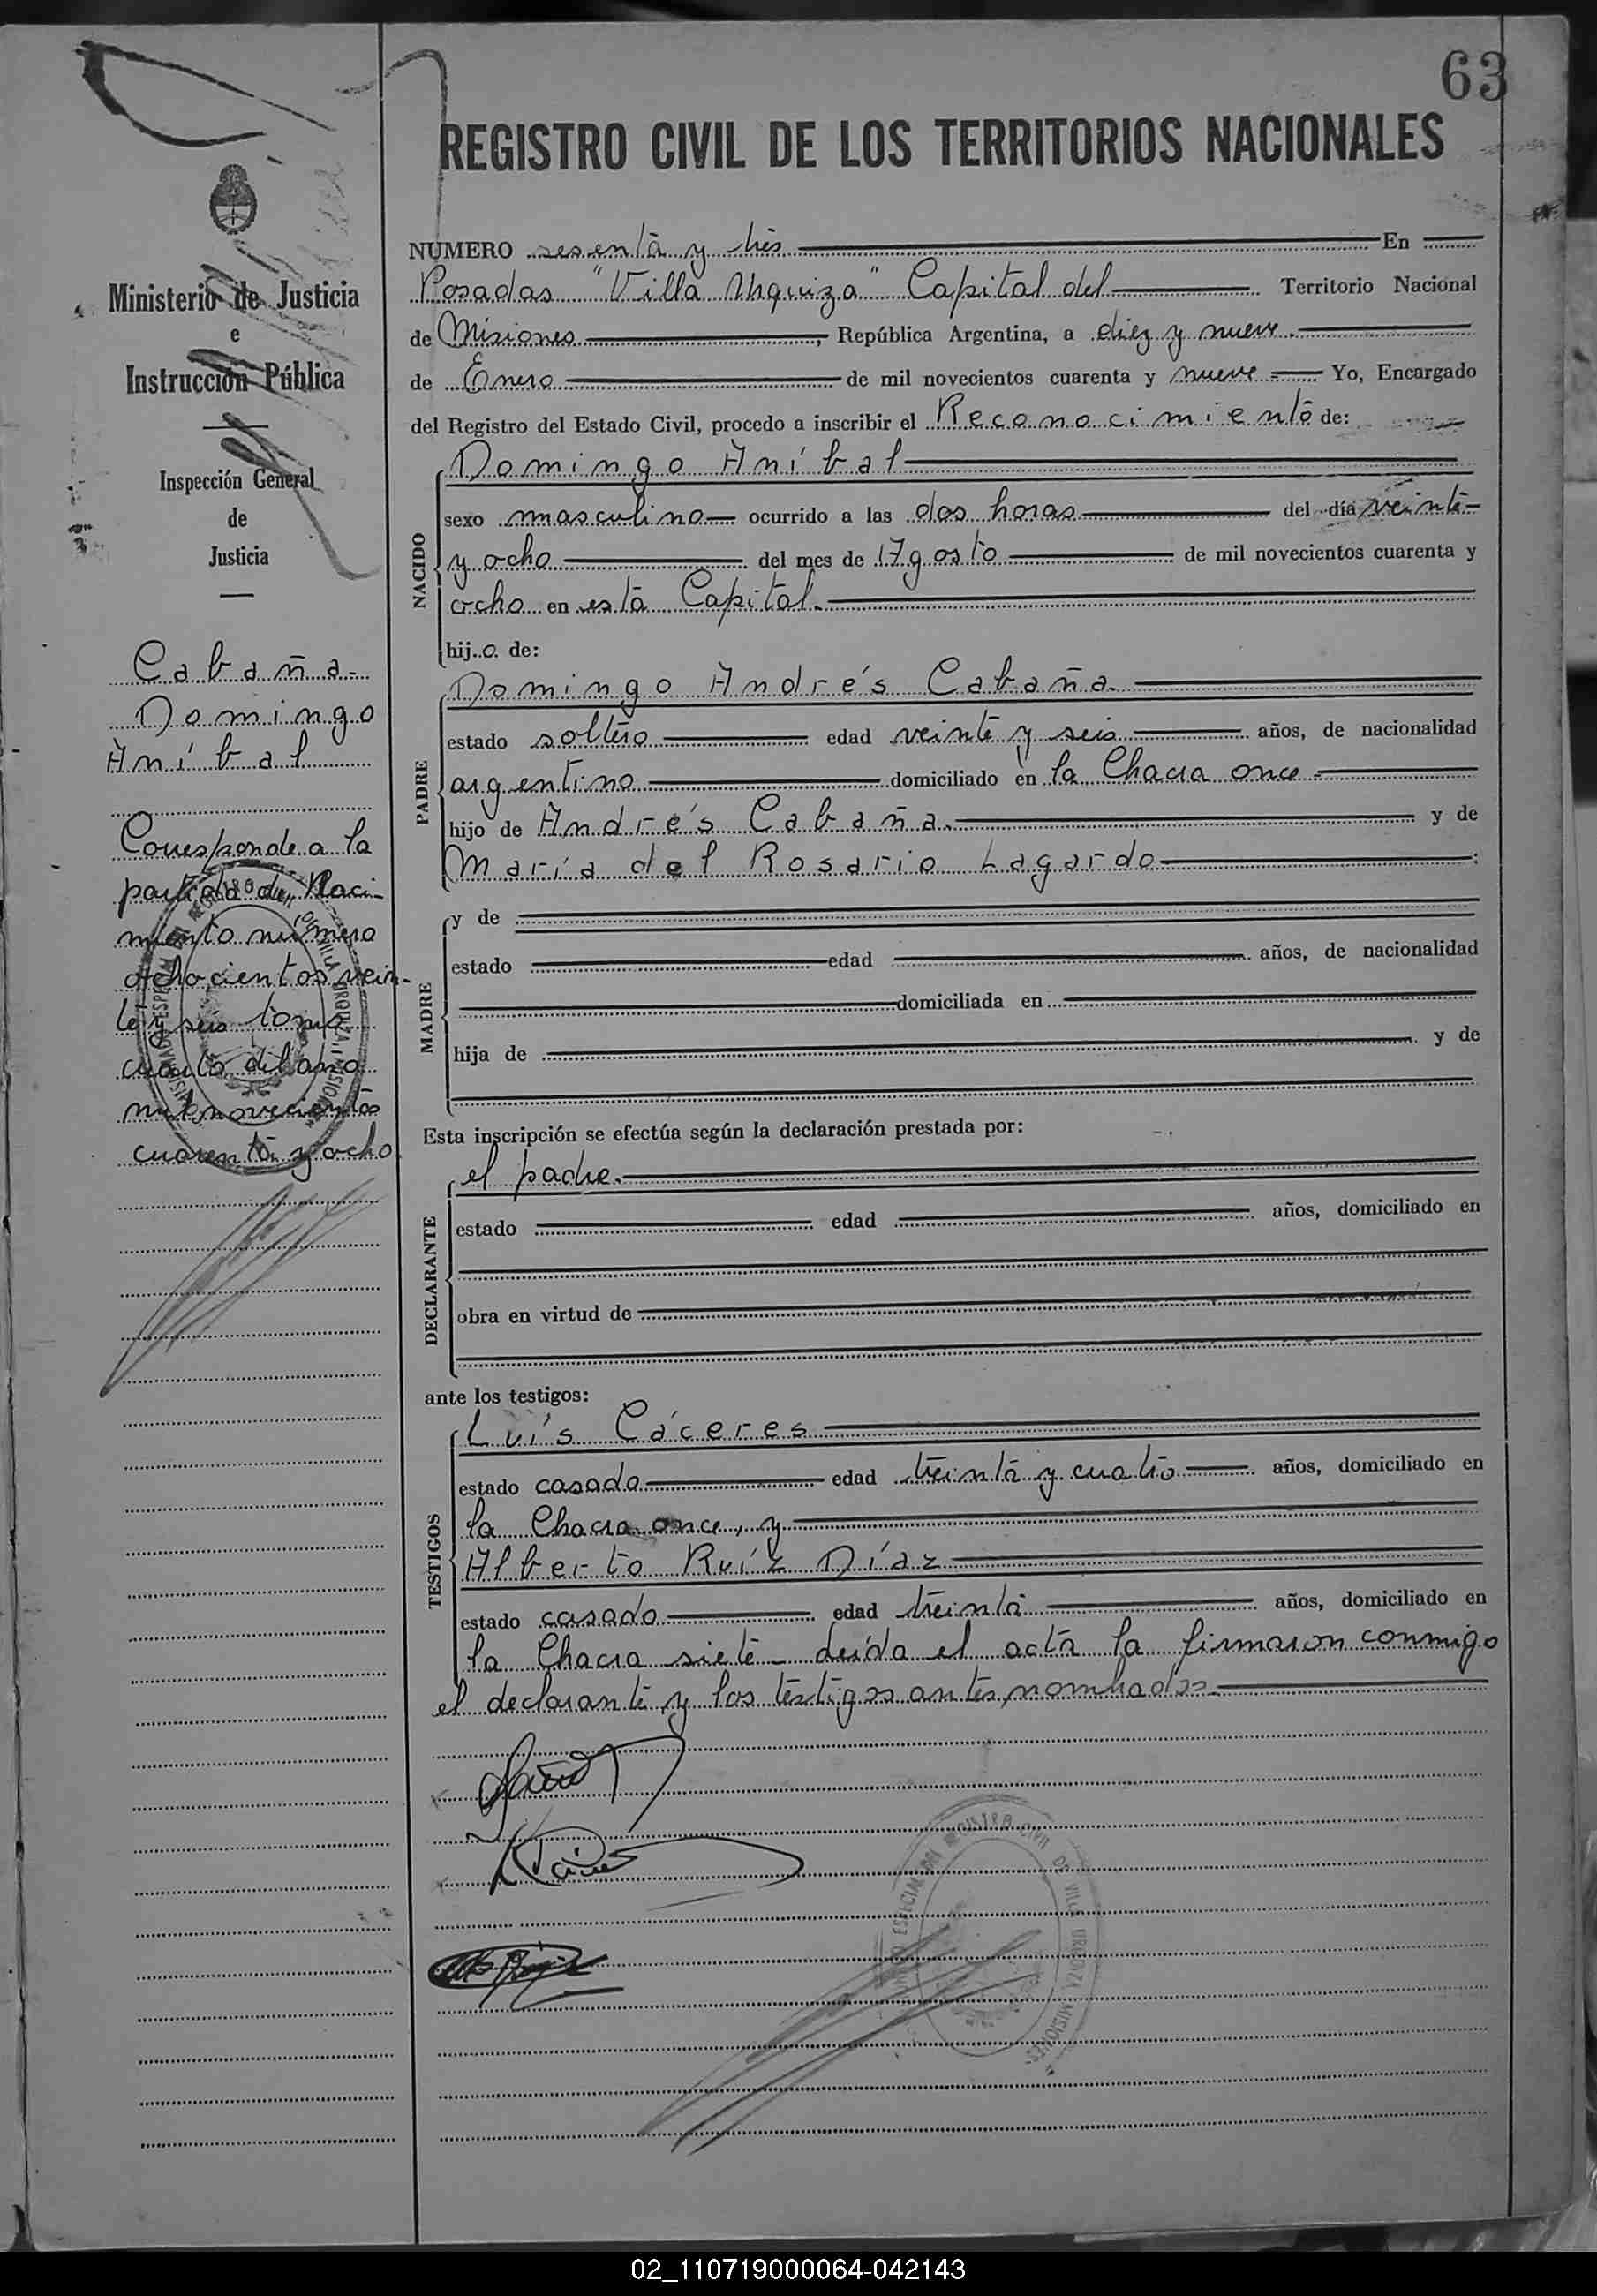 63
REGISTRO CIVIL DE LOS TERRITORIOS NACIONALES
Ministerio de Justicia
e
Instrucción Pública
Inspección General
de
Justicia
Cabaña-
Domingo
Aníbal
Corresponde a la
partida de Naci-
miento número
ochocientos vein-
te y seis tomo
cuarto del año
mil novecientos
cuarenta y ocho
NUMERO sesenta y tres En
Posadas "Villa Urquiza" Capital del Territorio Nacional
de Misiones, República Argentina, a diez y nueve.
de Enero de mil novecientos cuarenta y nueve Yo, Encargado
del Registro del Estado Civil, procedo a inscribir el Reconocimiento de:
NACIDO
Domingo Aníbal
sexo masculino ocurrido a las dos horas del día veinte-
y ocho del mes de Agosto de mil novecientos cuarenta y
ocho en esta Capital.
hij.o. de:
PADRE
Domingo Andrés Cabaña.
estado soltero edad veinte y seis años, de nacionalidad
argentino domiciliado en la Chacra once
hijo de Andrés Cabaña. y de
María del Rosario Lagardo:
MADRE
y de
estado edad años, de nacionalidad
domiciliada en
hija de y de
Esta inscripción se efectúa según la declaración prestada por:
DECLARANTE
el padre.
estado edad años, domiciliado en
obra en virtud de
ante los testigos:
TESTIGOS
Luís Cáceres
estado casado edad treinta y cuatro años, domiciliado en
la Chacra once, y
Alberto Ruíz Díaz
estado casado edad treinta años, domiciliado en
la Chacra siete - Leída el acta la firmaron conmigo
el declarante y los testigos antes nombrados.
REGISTRO CIVIL DE VILLA URQUIZA MISIONES
02_110719000064-042143